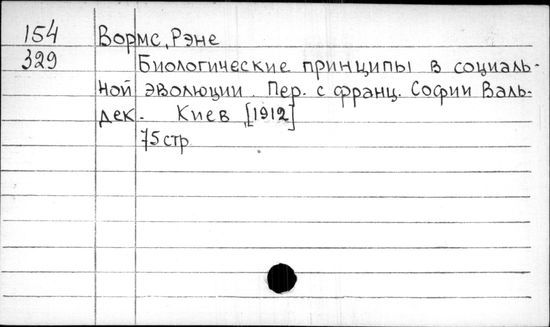 154 Вормс, Рэне
329 Биологические принципы в социаль-
ной эволюции. Пер. с франц. Софии Валь-
дек. Киев, [1912]
75 стр